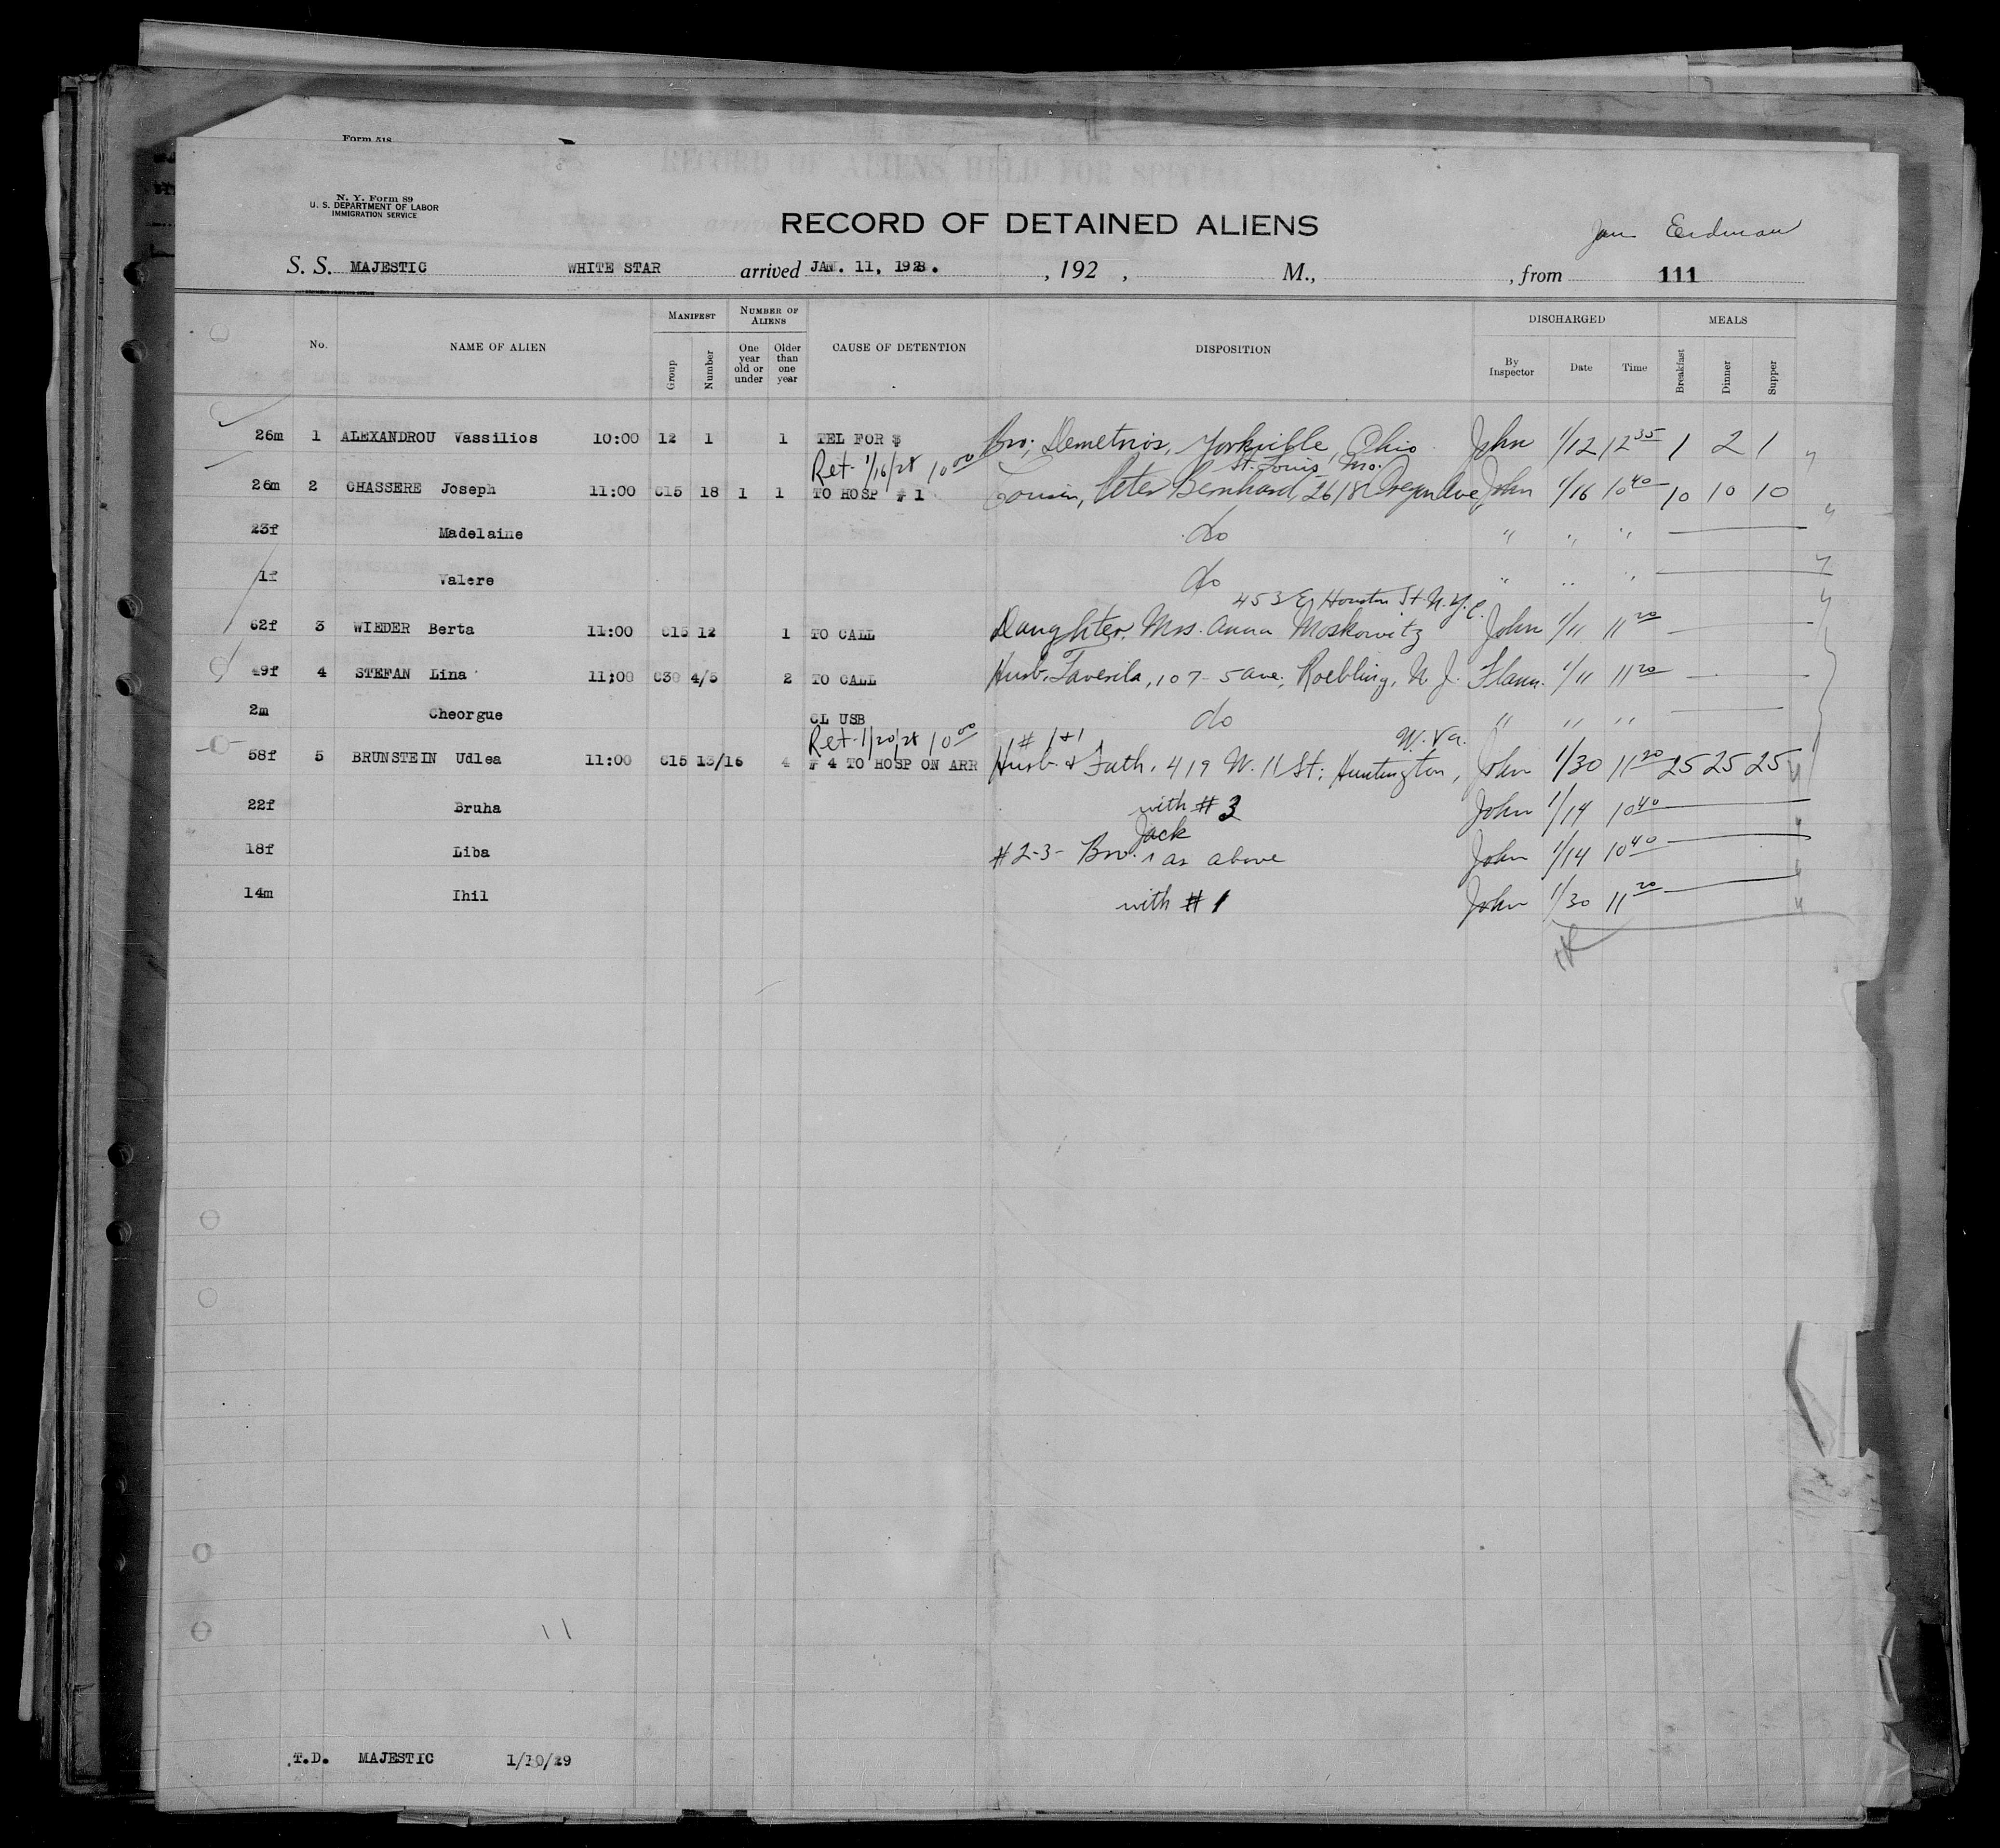 Form 518
N. Y. Form 89
U. S. DEPARTMENT OF LABOR
IMMIGRATION SERVICE
RECORD OF ALIENS HELD FOR SPECIAL
RECORD OF DETAINED ALIENS
Jan Erdman
S. S. MAJESTIC WHITE STAR arrived JAN. 11, 1928. , 192 , M., , from 111
No. NAME OF ALIEN MANIFEST Group Number NUMBER OF ALIENS One year old or under Older than one year CAUSE OF DETENTION DISPOSITION DISCHARGED By Inspector Date Time MEALS Breakfast Dinner Supper
26m 1 ALEXANDROU Vassilios 10:00 12 1 1 TEL FOR $ Bro; Demetrios, Yorkville, Ohio John 1/12 12 35 1 2 1
Ret 1/16/28 10 00 St. Louis, Mo.
26m 2 CHASSERE Joseph 11:00 C15 18 1 1 TO HOSP # 1 Cousin, Peter Bernhard, 2618 Oregon Ave, John 1/16 10 40 10 10 10
23f Madelaine do " " "
1f Valere do " " "
453 E. Houston St. N.Y.C.
62f 3 WIEDER Berta 11:00 C15 12 1 TO CALL Daughter, Mrs. Anna Moskowitz John 1/11 11 20
49f 4 STEFAN Lina 11:00 C30 4/5 2 TO CALL Husb. Taverila, 107-5 ave., Roebling, N. J. Flann. 1/11 11 20
2m Cheorgue CL USB do " " "
Ret 1/20/28 10 00 # 1+1 W. Va.
58f 5 BRUNSTEIN Udlea 11:00 C15 13/16 4 # 4 TO HOSP ON ARR Husb. & Fath. 419 W. 11 St; Huntington, John 1/30 11 20 25 25 25
22f Bruha with # 3 John 1/14 10 40
Jack
18f Liba #2-3- Bro. as above John 1/14 10 40
14m Ihil with # 1 John 1/30 11 20
T.D. MAJESTIC 1/10/29